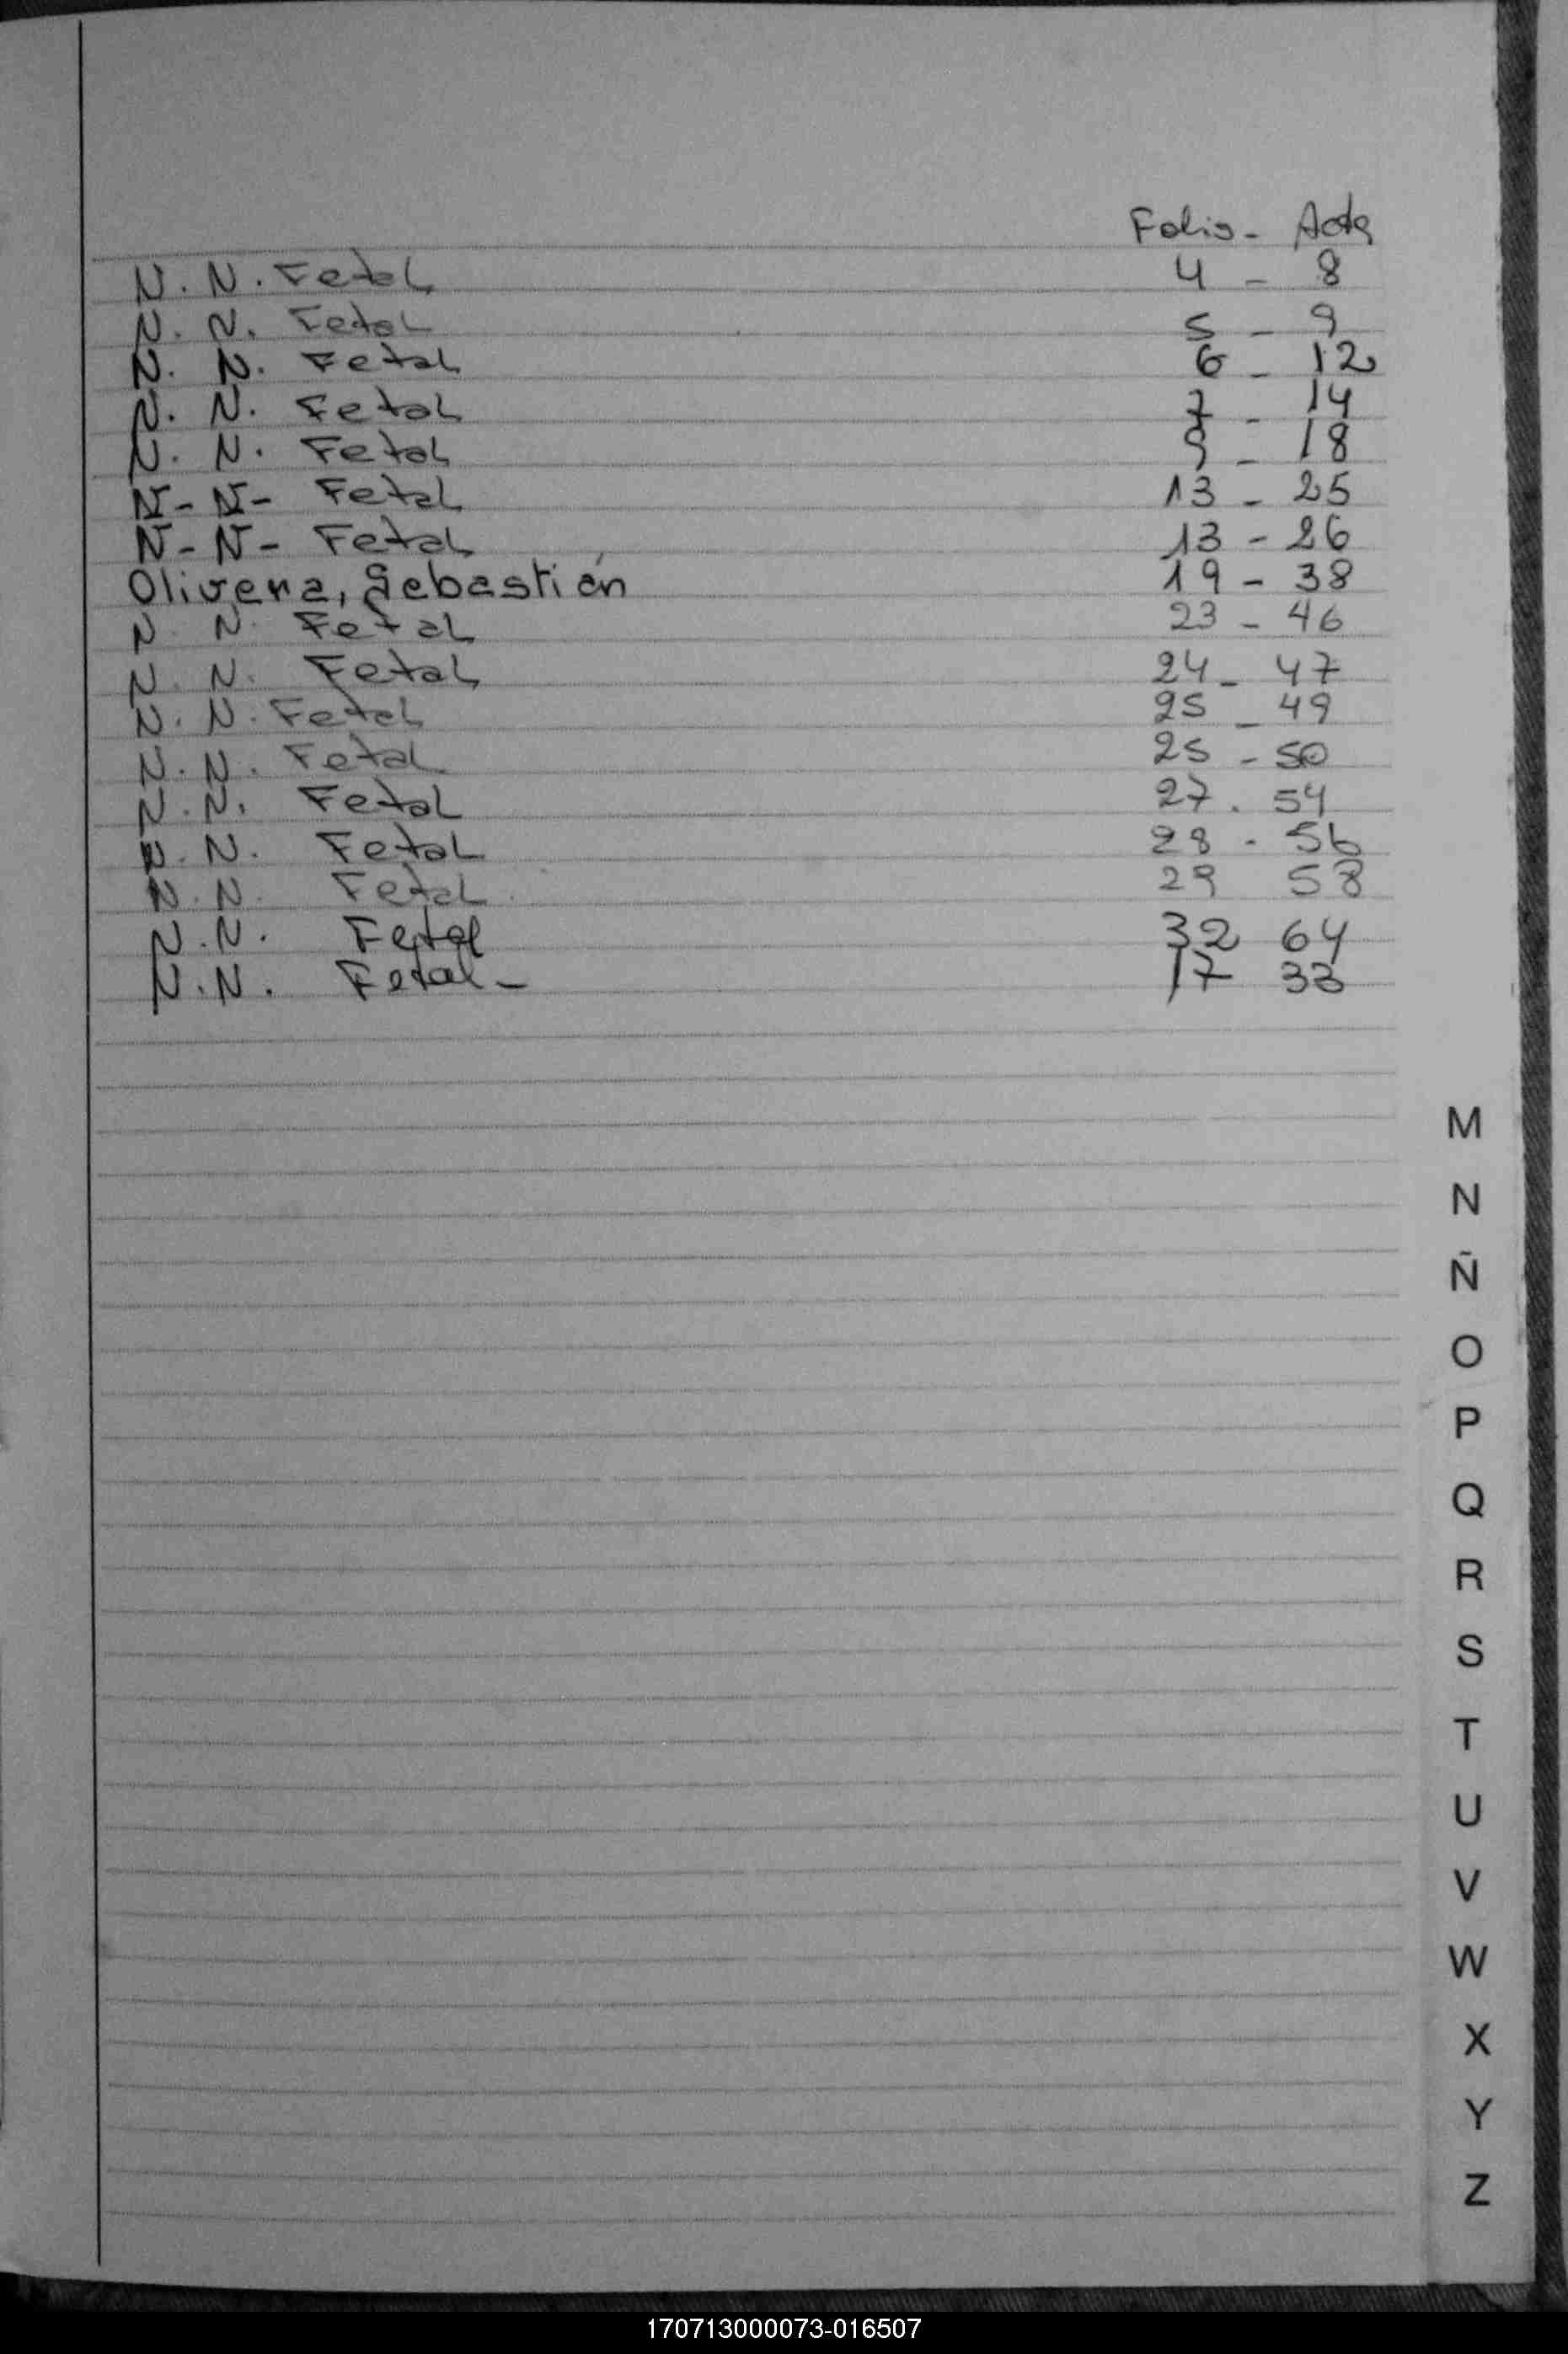 Folio - Acta
N. N. Fetal 4 - 8
N. N. Fetal 5 - 9
N. N. Fetal 6 - 12
N. N. Fetal 7 - 14
N. N. Fetal 9 - 18
N - N - Fetal 13 - 25
N - N - Fetal 13 - 26
Olivera, Sebastián 19 - 38
N N. Fetal 23 - 46
N. N. Fetal 24 - 47
N. N. Fetal 25 - 49
N. N. Fetal 25 - 50
N. N. Fetal 27 . 54
N. N. Fetal 28 - 56
N. N. Fetal 29 58
N. N. Fetal 32 64
N. N. Fetal - 17 33
M
N
Ñ
O
P
Q
R
S
T
U
V
W
X
Y
Z
170713000073-016507